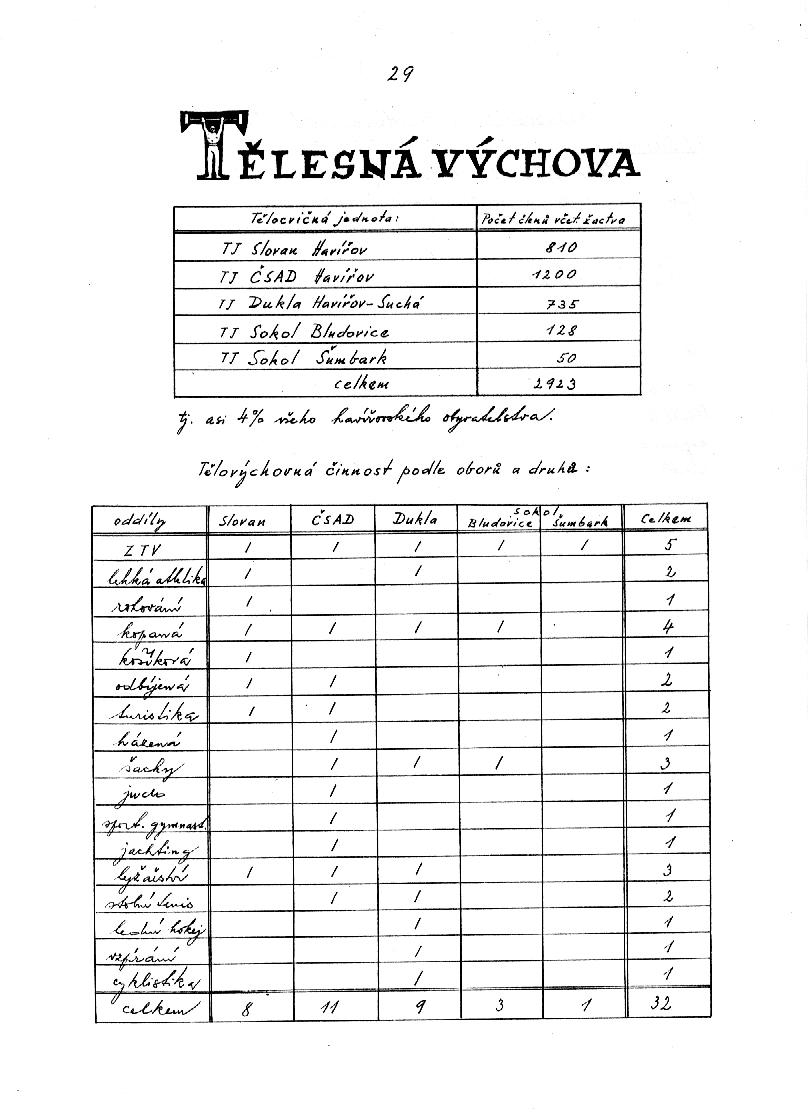 29
TĚLESNÁ VÝCHOVA
Tělocvičná jednota: Počet členů včet. žactva
TJ Slovan Havířov 810
TJ ČSAD Havířov 1200
TJ Dukla Havířov-Suchá 735
TJ Sokol Bludovice 128
TJ Sokol Šumbark 50
celkem 2923
tj. asi 4% všeho havířovského obyvatelstva.
Tělovýchovná činnost podle oborů a druhů:
Sokol
oddíly Slovan ČSAD Dukla Bludovice Šumbark Celkem
ZTV / / / / / 5
lehká athlika / / 2
rohování / 1
kopaná / / / / 4
košíková / 1
odbíjená / / 2
turistika / / 2
házená / 1
šachy / / / 3
judo / 1
sport. gymnast. / 1
jachting / 1
lyžařství / / / 3
stolní tenis / / 2
lední hokej / 1
vzpírání / 1
cyklistika / 1
celkem 8 11 9 3 1 32